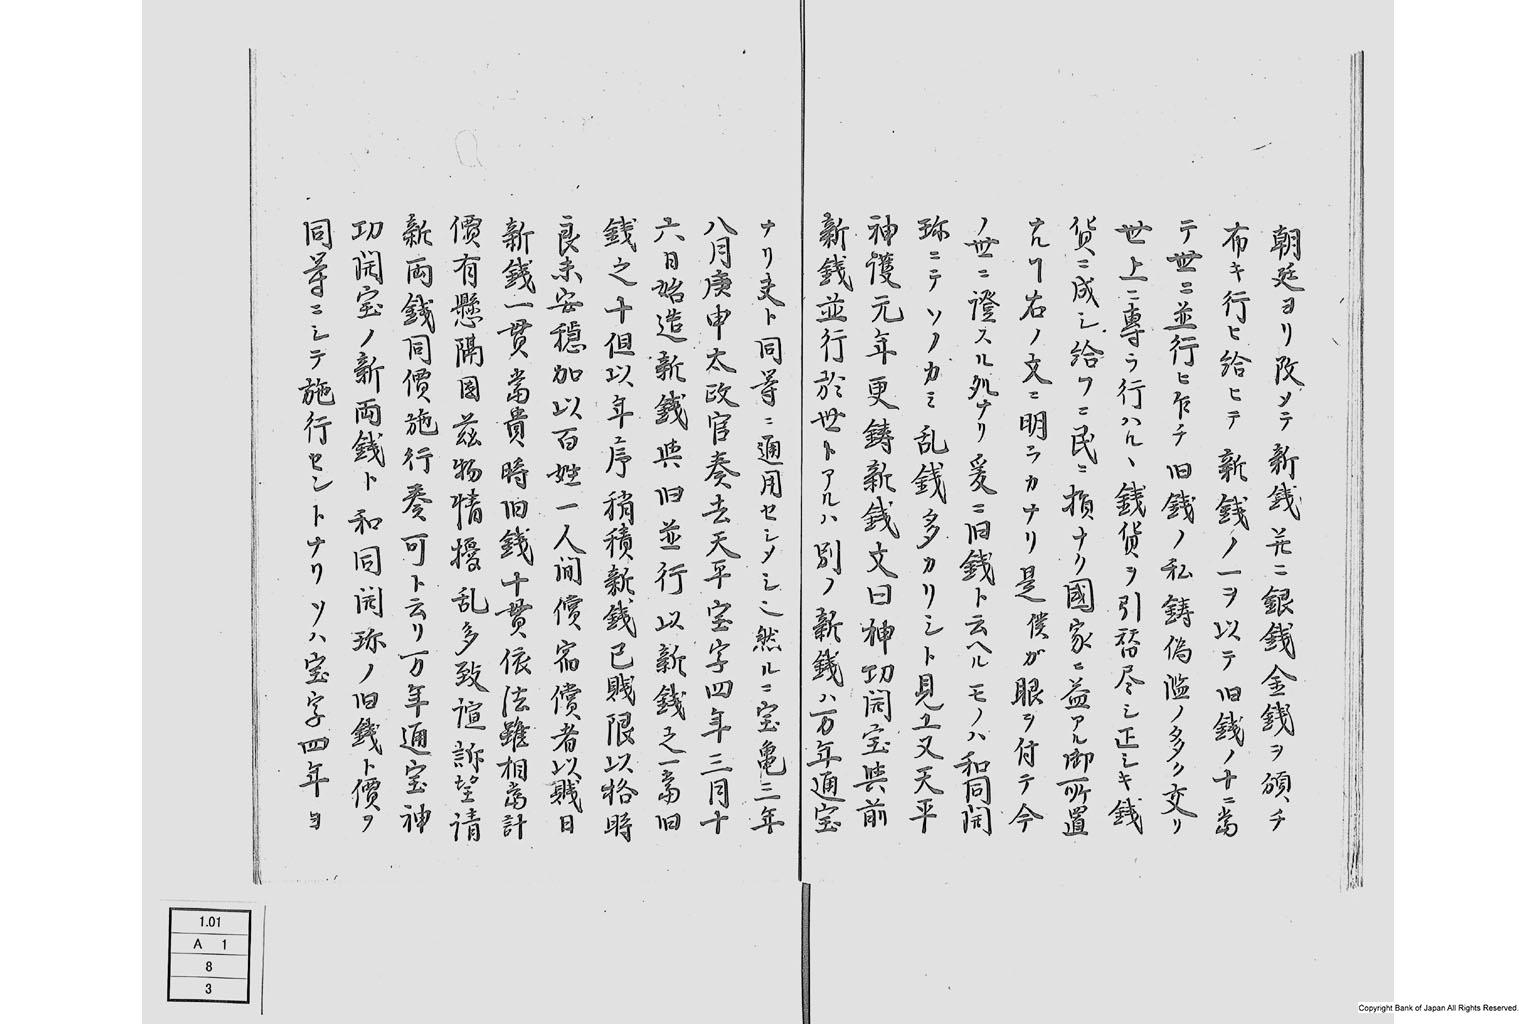 朝廷ヨリ改メテ新銭並ニ銀銭金銭ヲ頒チ
布キ行ヒ給ヒテ新銭ノ一ヲ以テ旧銭ノ十ニ當
テ世ニ並行ヒ乍チ旧銭ノ私鋳偽濫ノ多ク交リ
世上ニ専ラ行ハルヽ銭貨ヲ引替尽シ正シキ銭
貨ニ成シ給フニ民ニ損ナク國家ニ益アル御所置
ナルヿ右ノ文ニ明ラカナリ是僕ガ眼ヲ付テ今
ノ世ニ證スル処ナリ爰ニ旧銭ト云ヘルモノハ和同開
珎ニテソノカミ乱銭多カリシト見ユ又天平
神護元年更鋳新銭文曰神功開宝與前
新銭並行於世トアルハ別ノ新銭ハ万年通宝
ナリ夫ト同等ニ通用セシメシ也然ルニ宝亀三年
八月庚申太政官奏去天平宝字四年三月十
六日始造新銭與旧並行以新銭之一當旧
銭之十但以年序稍積新銭已賎限以格時
良未安穏加以百姓一人間償宿償者以賎日
新銭一貫當貴時旧銭十貫依法雖相當計
價有懸隔因茲物情擾乱多致諠訴望請
新両銭同價施行奏可ト云リ万年通宝神
功開宝ノ新両銭ト和同開珎ノ旧銭ト價ヲ
同等ニシテ施行セントナリソハ宝字四年ヨ
1.01
A 1
8
3
Copyright Bank of Japan All Rights Reserved.